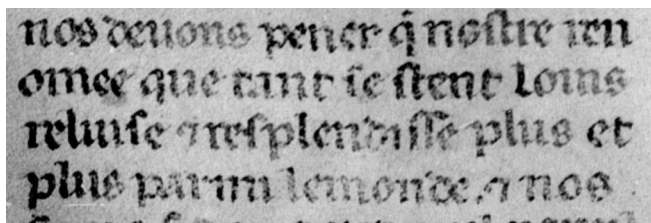 nos deuons pener q̃ nostre ren
omee que tant se stent loins
reluise ⁊ resplendisse plus et
plus parmi lemonde. ⁊ nos